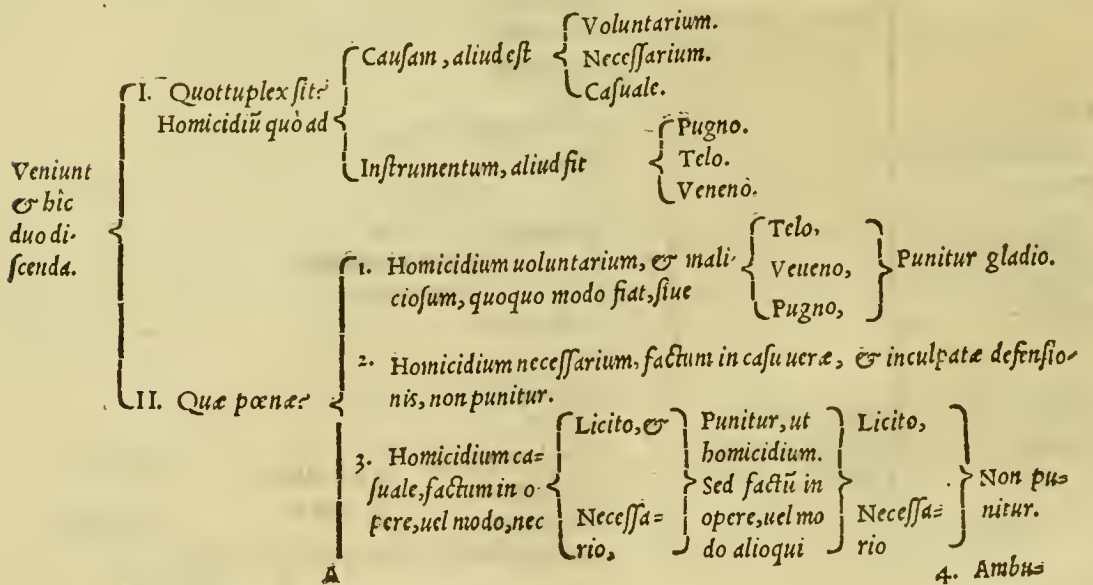 Veniunt
& hîc
duo di-
ſcenda.
I. Quottuplex ſit?
Homicidiũ quò ad
Cauſam, aliud eſt
Voluntarium.
Neceſſarium.
Caſuale.
Inſtrumentum, aliud fit
Pugno.
Telo.
Venenò.
II. Quæ pœnæ?
1. Homicidium uoluntarium, & mali-
cioſum, quoquo modo fiat, ſiue
Telo,
Veueno,
Pugno,
Punitur gladio.
2. Homicidium neceſſarium, factum in caſu ueræ, & inculpatæ defenſio-
nis, non punitur.
3. Homicidium ca=
ſuale, factum in o-
pere, uel modo, nec
Licito, &
Neceſſa=
rio,
Punitur, ut
homicidium.
Sed factũ in
opere, uel mo
do alioqui
Licito,
Neceſſa=
rio
Non pu=
nitur.
A
4. Ambu=